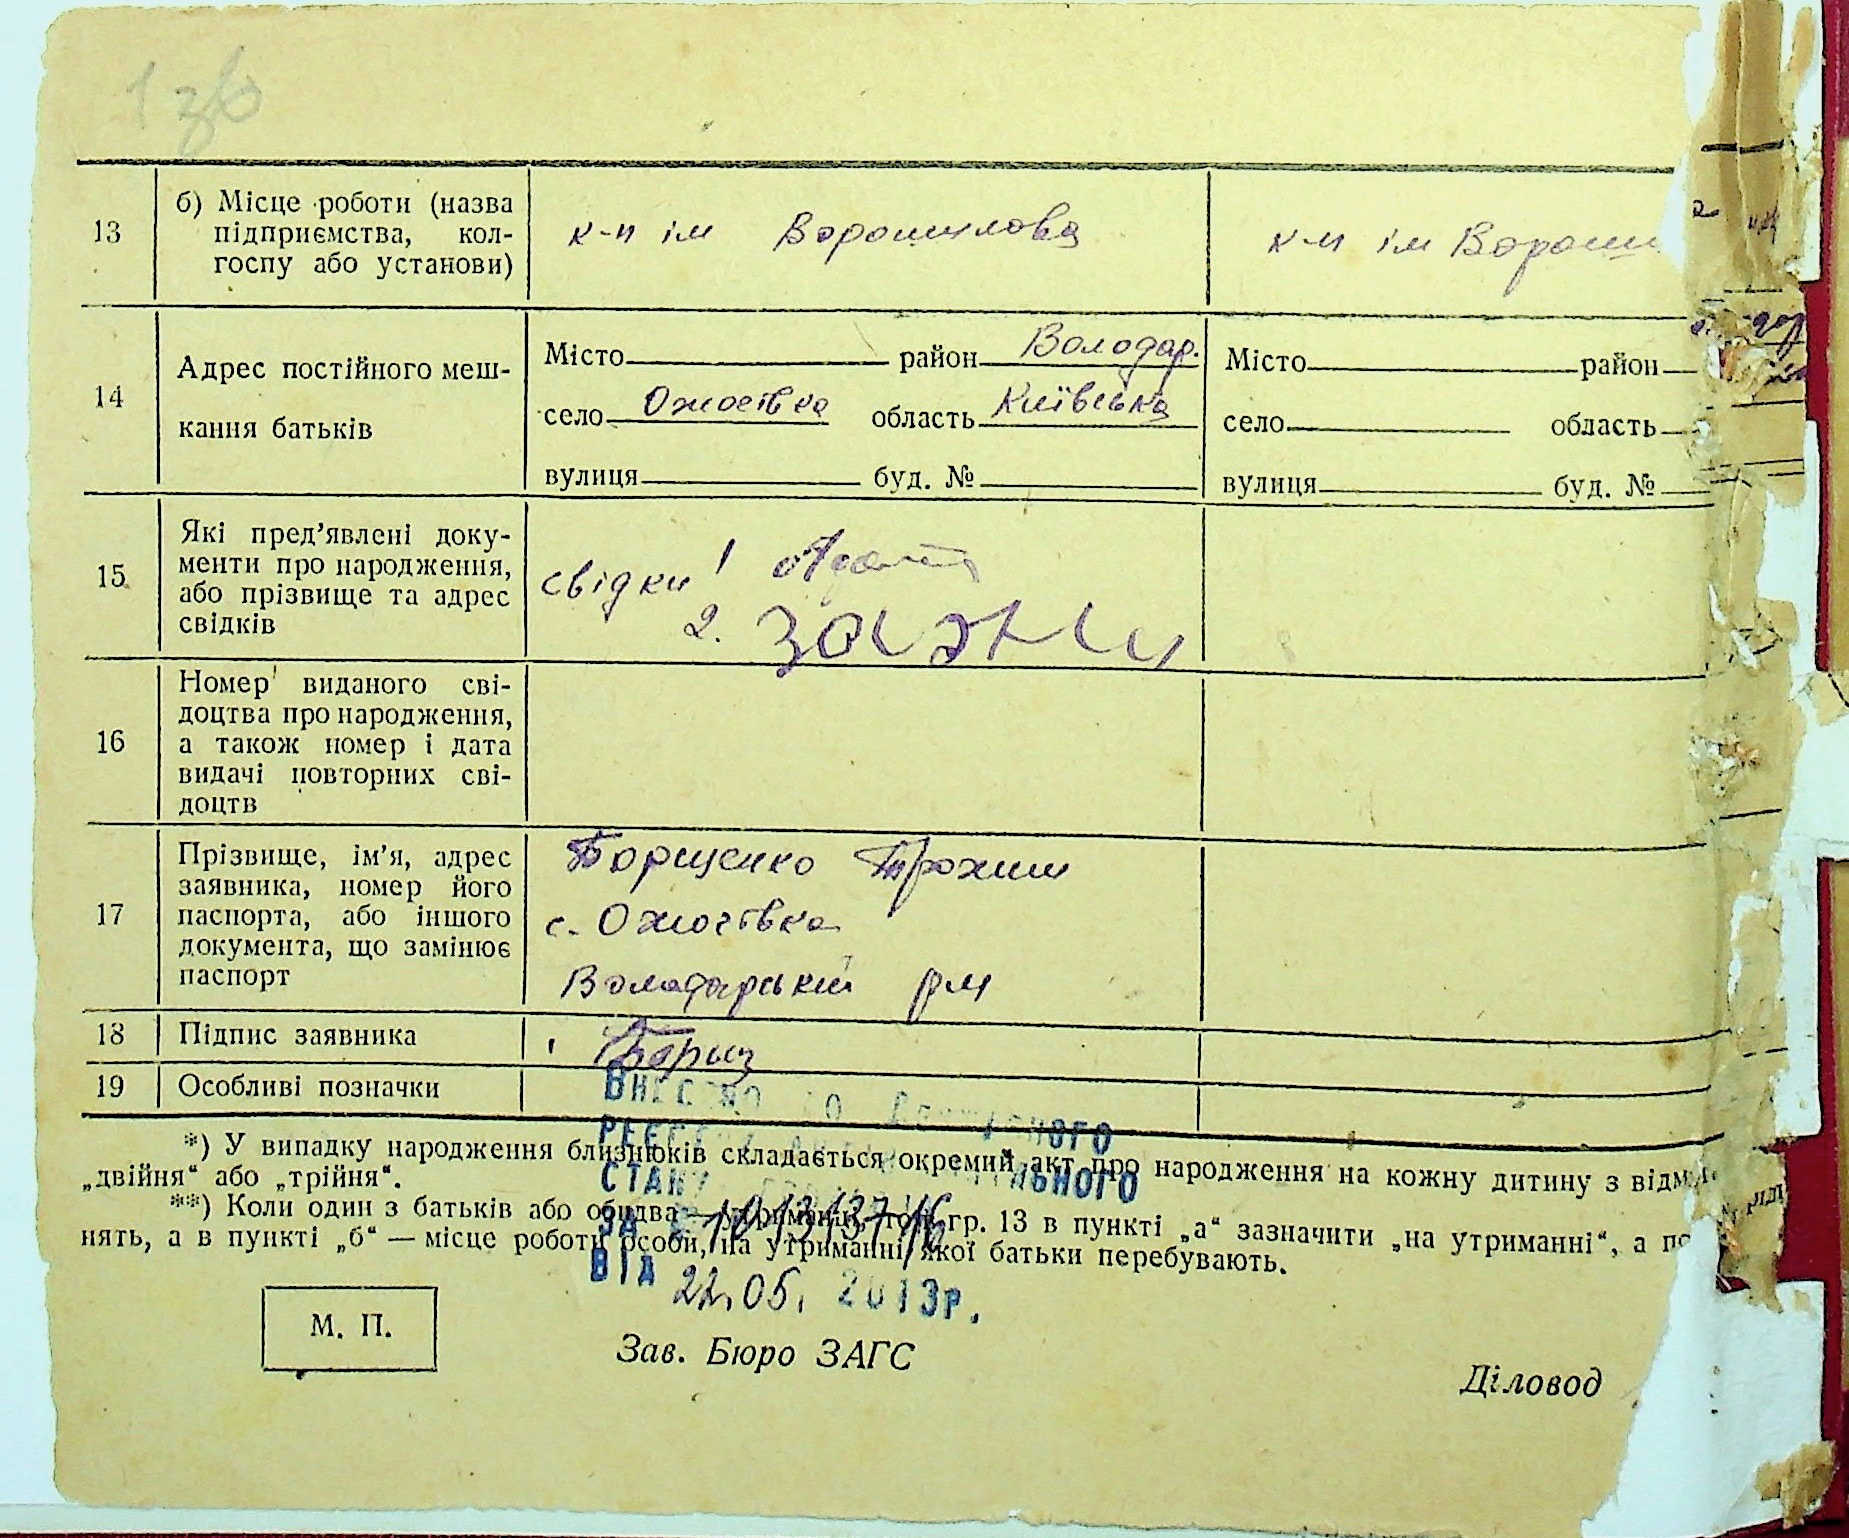 1 зв
13
б) Місце роботи (назва
підприємства, кол-
госпу або установи)
к-п ім Ворошилова
к-п ім Вороши
14
Адрес постійного меш-
кання батьків
Місто район Володар.
село Ожогівка область Київська
вулиця буд. №
Місто район
село область
вулиця буд. №
15
Які пред’явлені доку-
менти про народження,
або прізвище та адрес
свідків
свідки 1
2.
16
Номер виданого сві-
доцтва про народження,
а також номер і дата
видачі повторних сві-
доцтв
17
Прізвище, ім’я, адрес
заявника, номер його
паспорта, або іншого
документа, що замінює
паспорт
Борщенко Трохим
с. Ожогівка
Володарський р-н
18
Підпис заявника
Борщ
19
Особливі позначки
Внесено до Державного
реєстру
стану
за №
від 22.05. 2013р.
*) У випадку народження близнюків складається окремий акт про народження на кожну дитину з відм
„двійня“ або „трійня“.
**) Коли один з батьків або обидва — утриманці, тоді гр. 13 в пункті „а“ зазначити „на утриманні“, а по
нять, а в пункті „б“ — місце роботи особи, на утриманні якої батьки перебувають.
М. П.
Зав. Бюро ЗАГС
Діловод